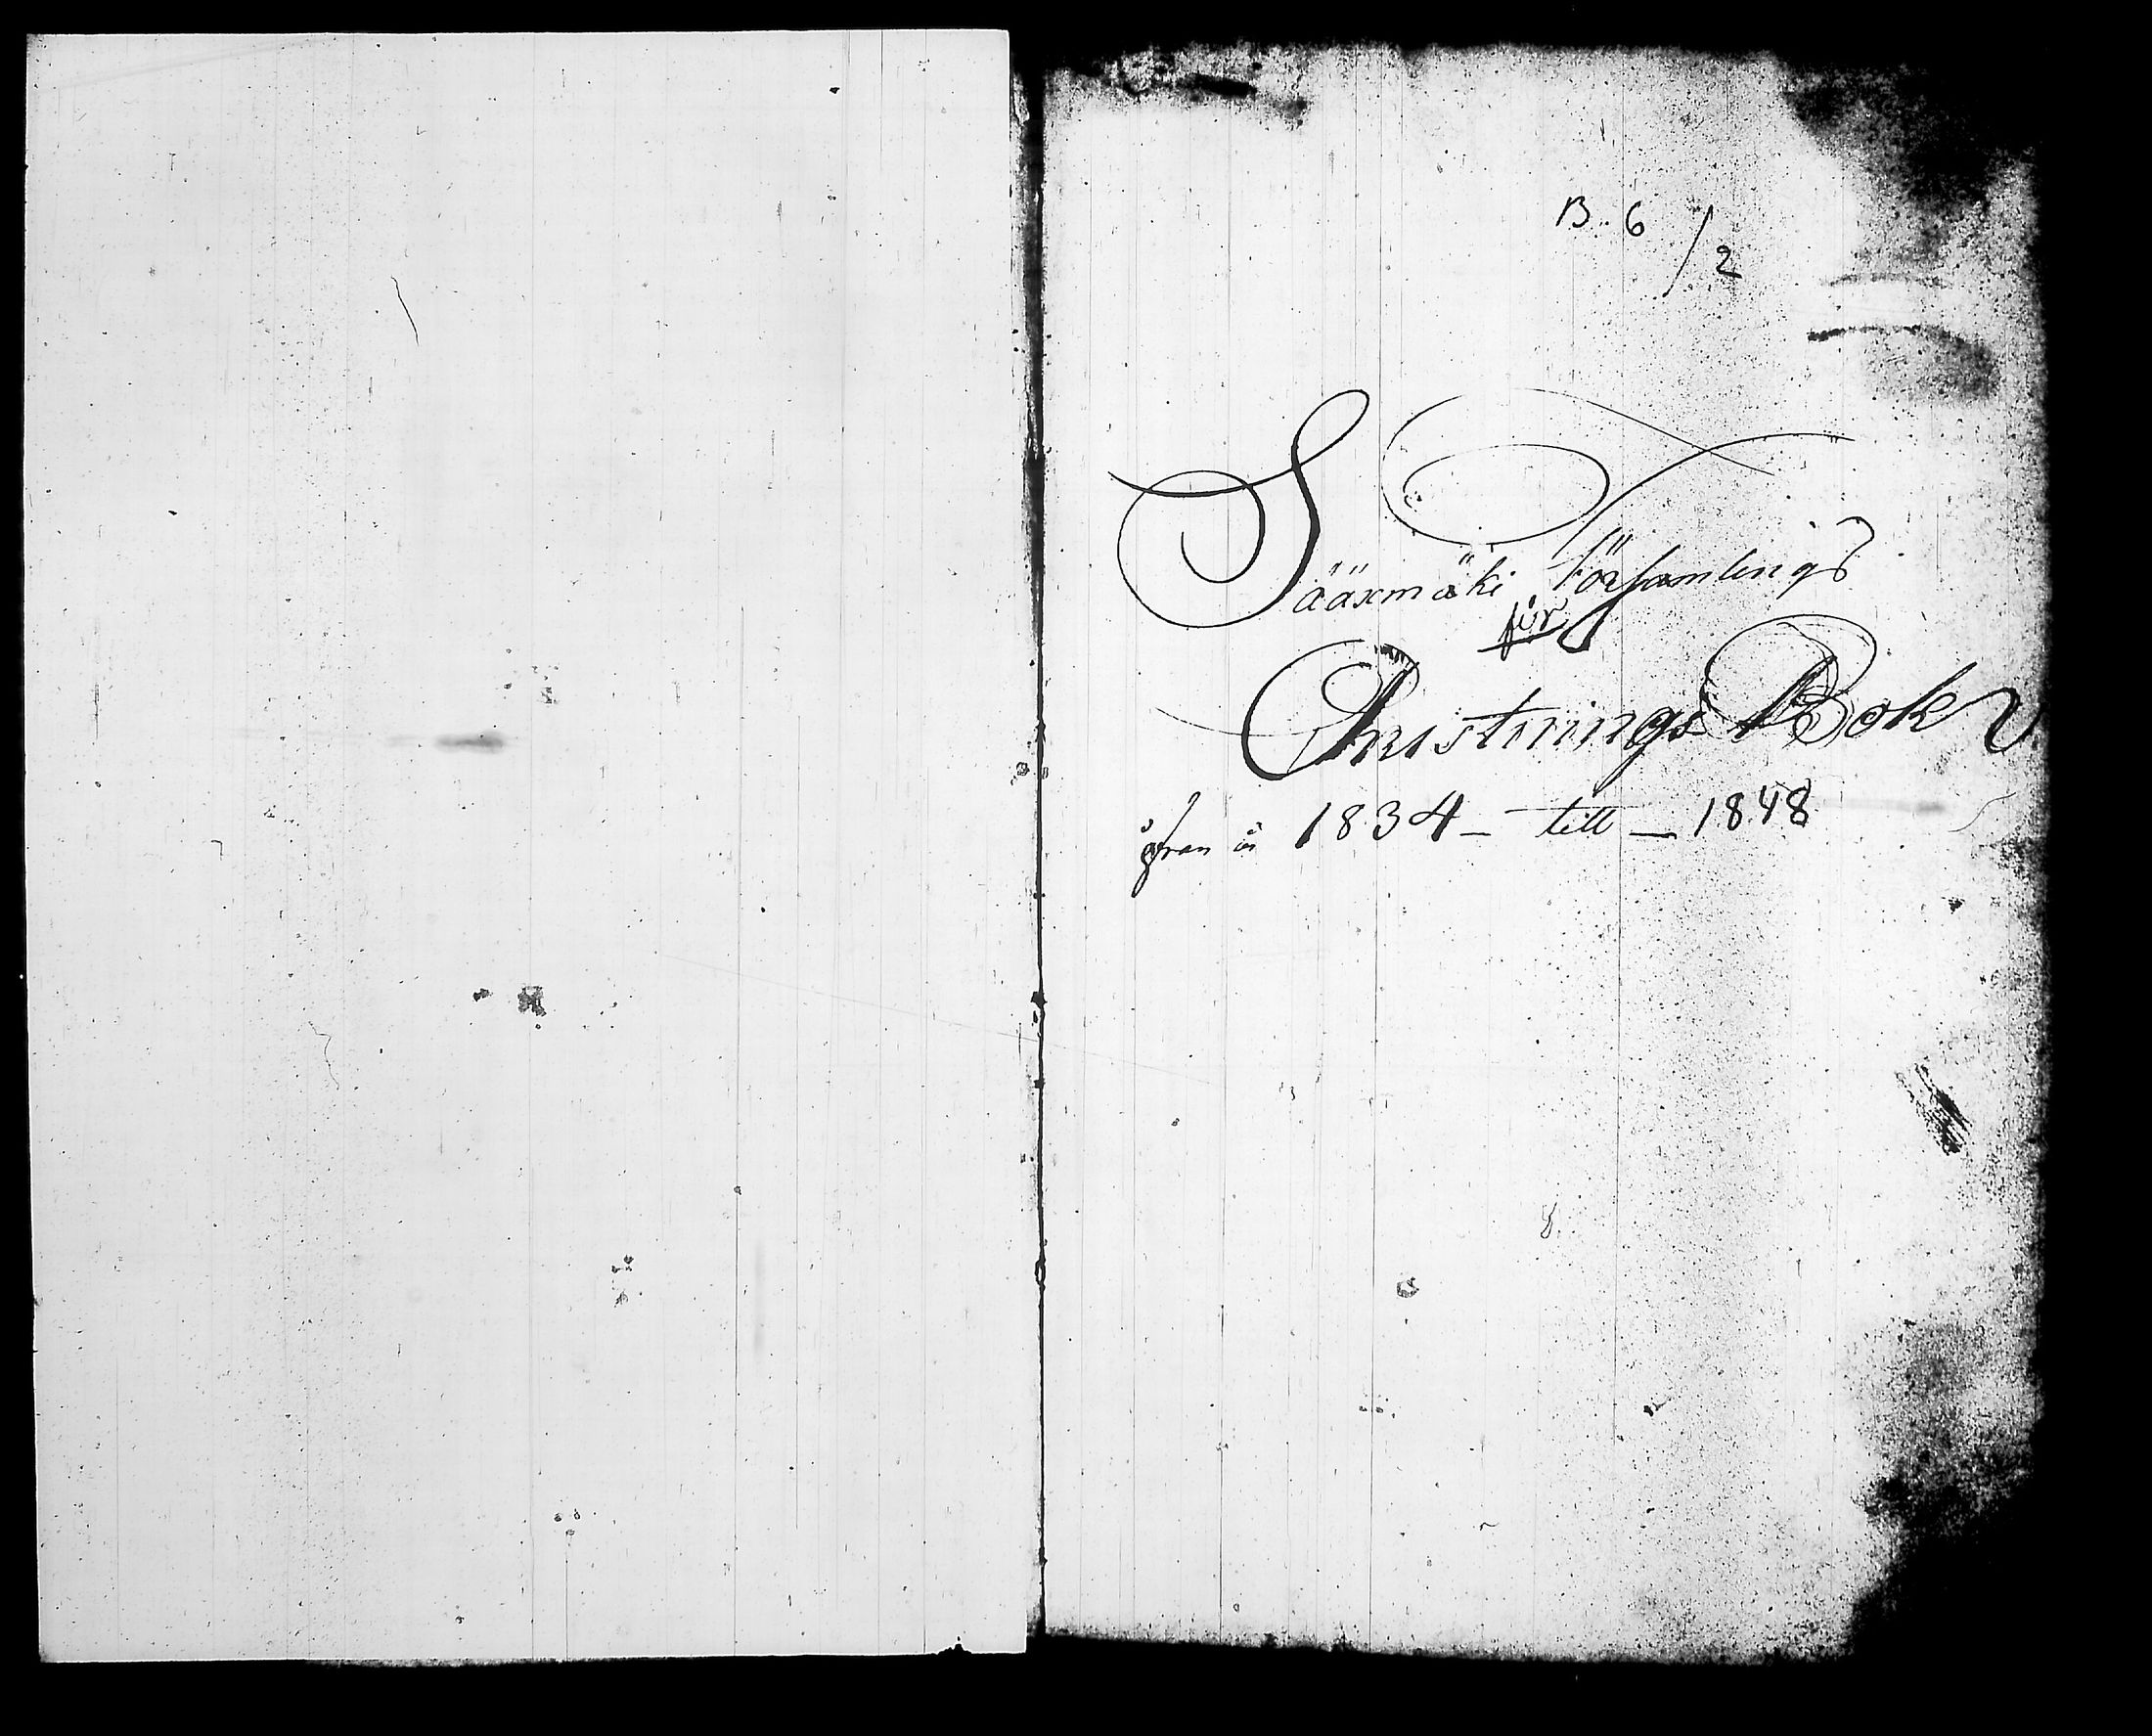 B. 6
/ 2
Sääxmäki Församlings
för
Christnings Bok
ifrån år 1834 _ till _ 1848